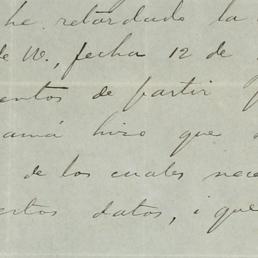 he retardado la
de U., fecha 12 de
entos de partir
amá hizo que
de los cuales nece
ertos datos, i que